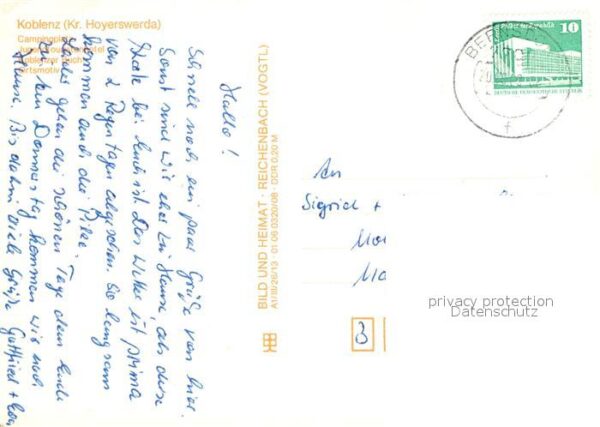 Koblenz (Kr. Hoyerswerda)
Campingplatz
Hallo!
Schnell noch ein paar Grüße von hier.
Sonst sind wir eher zu Hause, als diese
Karte bei Euch ist. Das Wetter ist prima
von 2 Regentagen abgesehen. So langsam
kommen auch die Pilze.
Leider gehen die schönen Tage dem Ende
zu, am Donnerstag kommen wir nach
Hause. Bis dahin viele Grüße Gottfried +
BILD UND HEIMAT · REICHENBACH (VOGTL)
A1/III/26/13 · 01 06 0320/08 · DDR 0,20 M
10
An
Sigrid +
3
privacy protection
Datenschutz